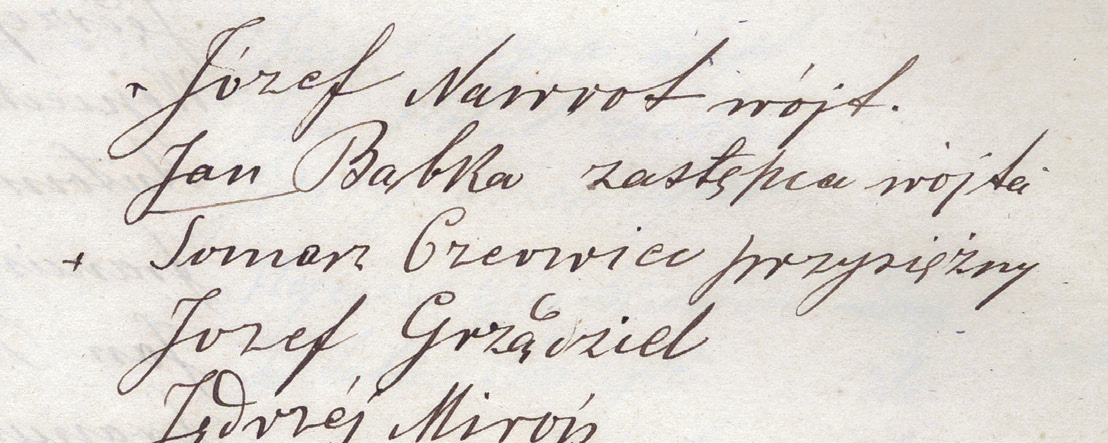 Józef Nawrot wójt.
Jan Bąbka zastępca wójta
+ Tomasz Czeowiec przysiężny
Jozef Grządziel
Jędrzéj Miroń